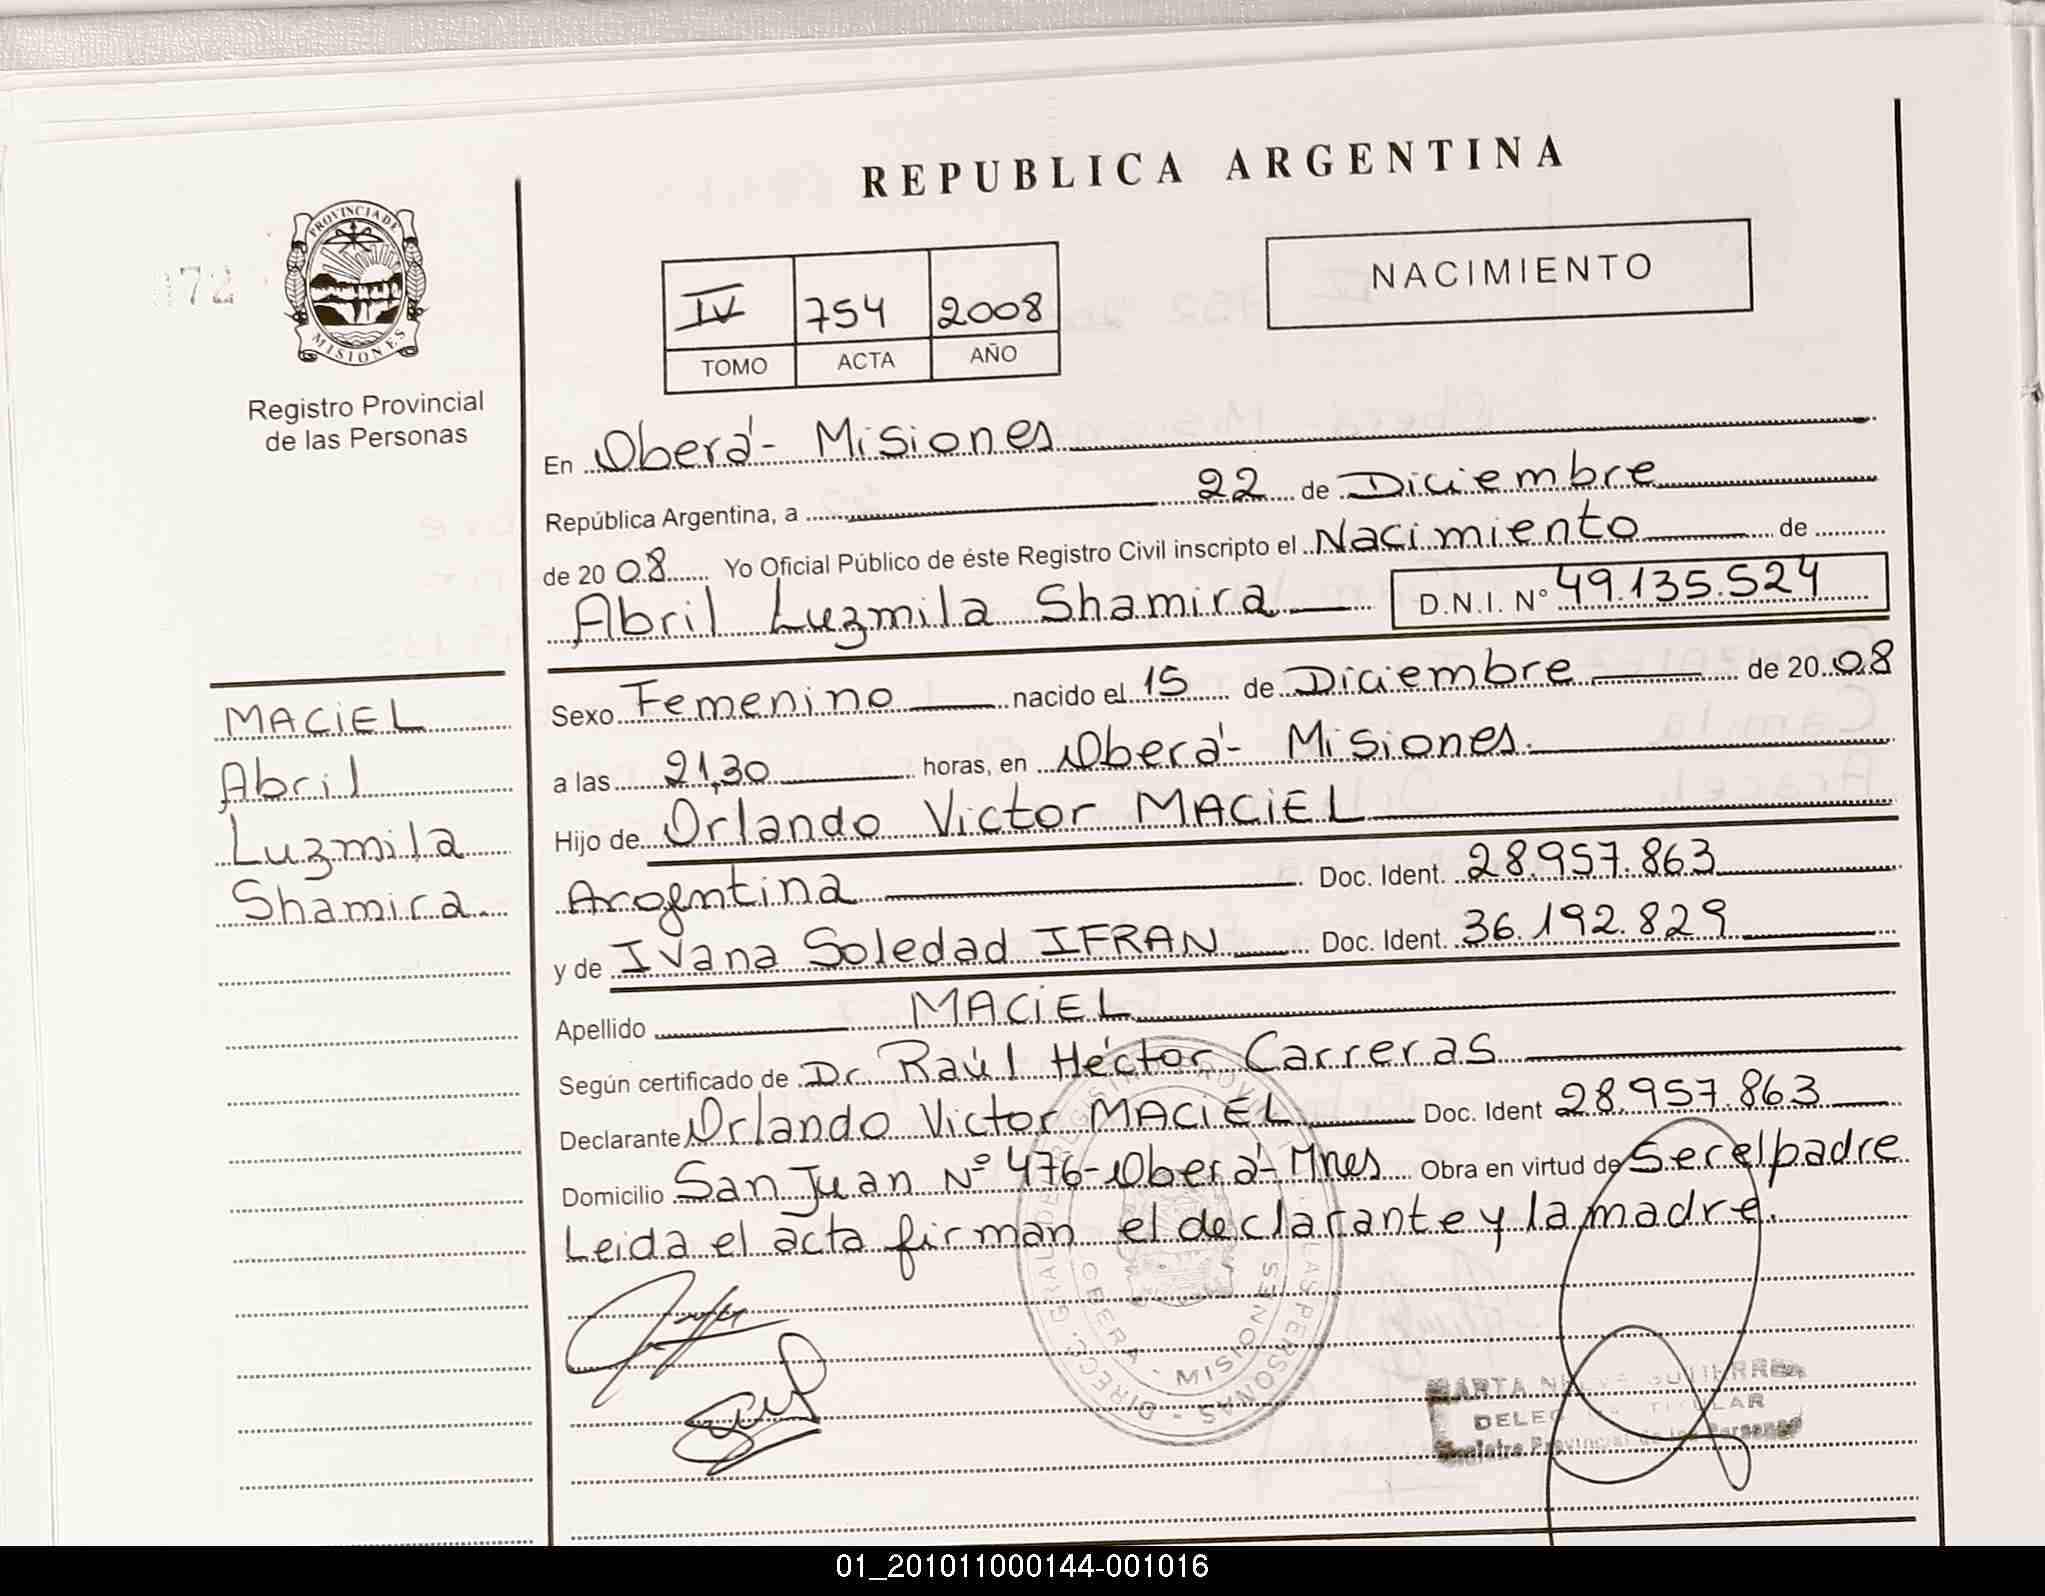 REPUBLICA ARGENTINA
PROVINCIA DE
MISIONES
72
Registro Provincial
de las Personas
IV 754 2008
TOMO ACTA AÑO
NACIMIENTO
En Oberá - Misiones
República Argentina, a 22 de Diciembre
de 2008 Yo Oficial Público de éste Registro Civil inscripto el Nacimiento de
Abril Luzmila Shamira D.N.I. N° 49.135.524
Sexo Femenino nacido el 15 de Diciembre de 2008
a las 21,30 horas, en Oberá - Misiones.
Hijo de Orlando Victor MACIEL
Argentina Doc. Ident. 28.957.863
y de Ivana Soledad IFRAN Doc. Ident. 36.192.829
Apellido MACIEL
Según certificado de Dr. Raúl Héctor Carreras
Declarante Orlando Victor MACIEL Doc. Ident 28.957.863
Domicilio San Juan Nº 476 - Oberá - Mnes Obra en virtud de Ser el padre
Leida el acta firman el declarante y la madre.
MACIEL
Abril
Luzmila
Shamira.
DIRECC. GRAL. DE REGISTRO PROVIN LAS PERSONAS
OBERA - MISIONES
MARTA GUTIERRE
TITULAR
Registro Provincial de las Personas
01_201011000144-001016